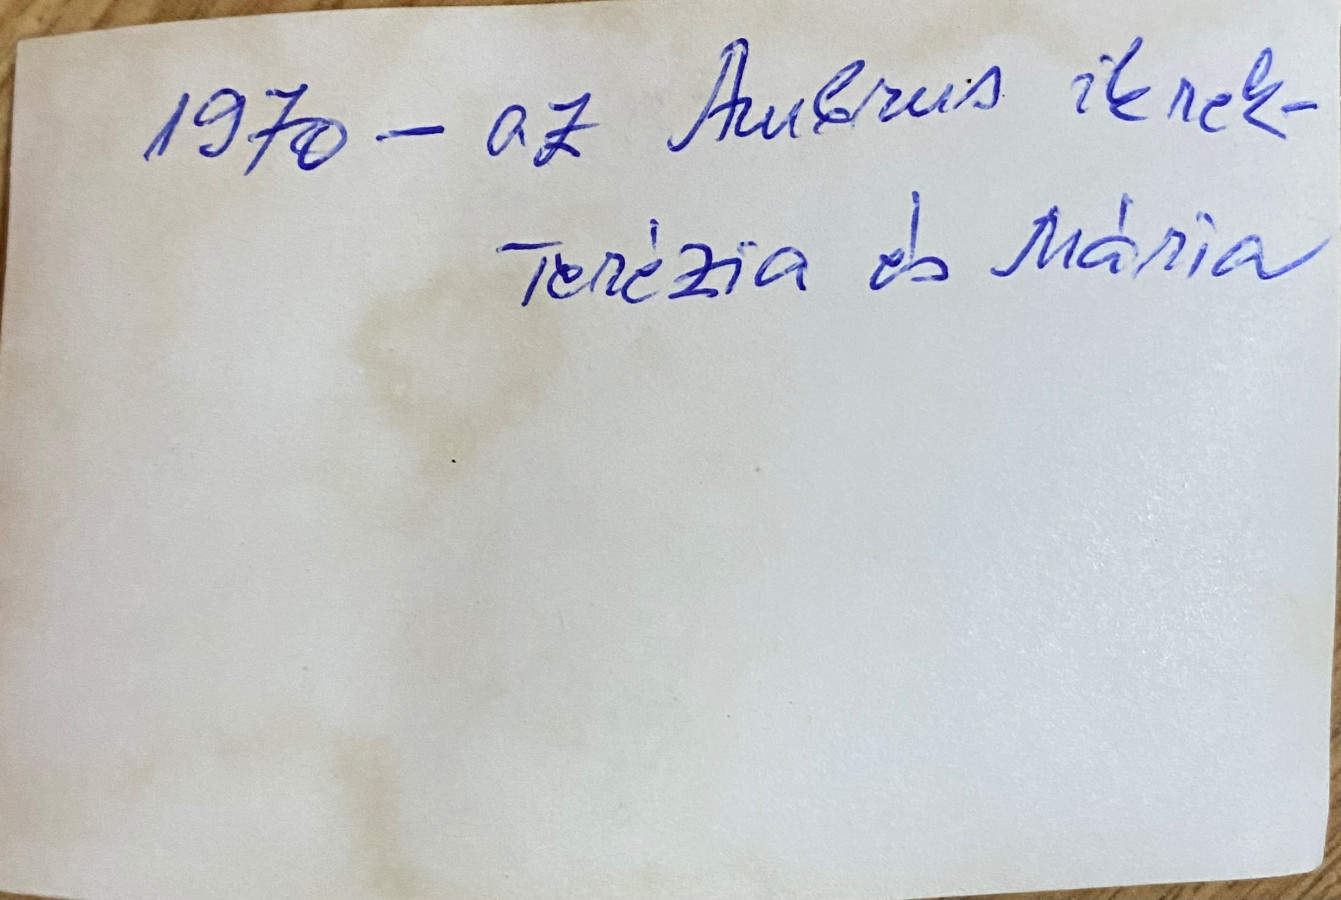 1970 – az Ambrus ikrek –
Terézia és Mária